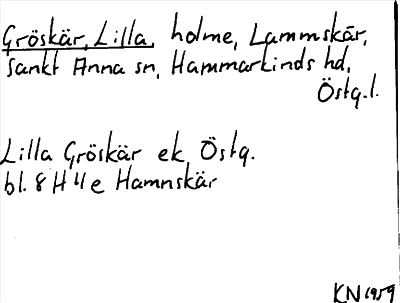 Gröskär, Lilla, holme, Lammskär,
Sankt Anna sn, Hammarkinds hd,
Östg.l.
Lilla Gröskär ek Östg.
bl. 8 H 4 e Hamnskär
KN 1959